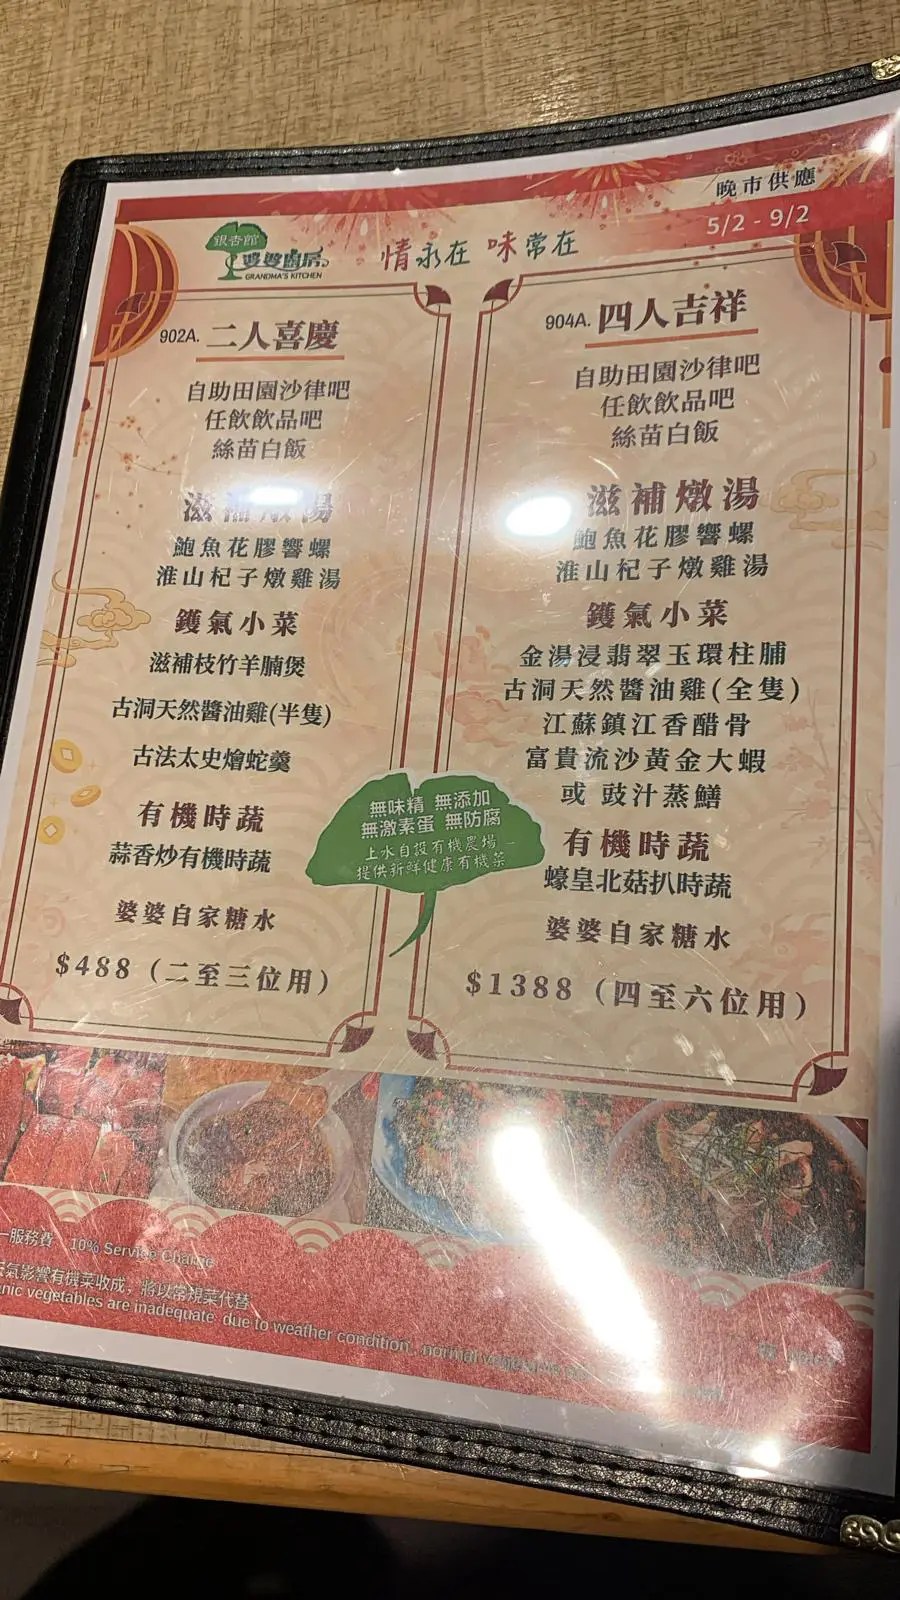 晚市供應
5/2 - 9/2
銀杏館
婆婆廚房
GRANDMA'S KITCHEN
情永在 味常在
902A. 二人喜慶
自助田園沙律吧
任飲飲品吧
絲苗白飯
滋補燉湯
鮑魚花膠響螺
淮山杞子燉雞湯
鑊氣小菜
滋補枝竹羊腩煲
古洞天然醬油雞(半隻)
古法太史燴蛇羹
有機時蔬
蒜香炒有機時蔬
婆婆自家糖水
$488 (二至三位用)
904A. 四人吉祥
自助田園沙律吧
任飲飲品吧
絲苗白飯
滋補燉湯
鮑魚花膠響螺
淮山杞子燉雞湯
鑊氣小菜
金湯浸翡翠玉環柱脯
古洞天然醬油雞(全隻)
江蘇鎮江香醋骨
富貴流沙黃金大蝦
或 豉汁蒸鱔
有機時蔬
蠔皇北菇扒時蔬
婆婆自家糖水
$1388 (四至六位用)
無味精 無添加
無激素蛋 無防腐
上水自設有機農場
提供新鮮健康有機菜
一服務費 10% Service Charge
天氣影響有機菜收成，將以常規菜代替
vegetables are inadequate due to weather condition, normal vegetable